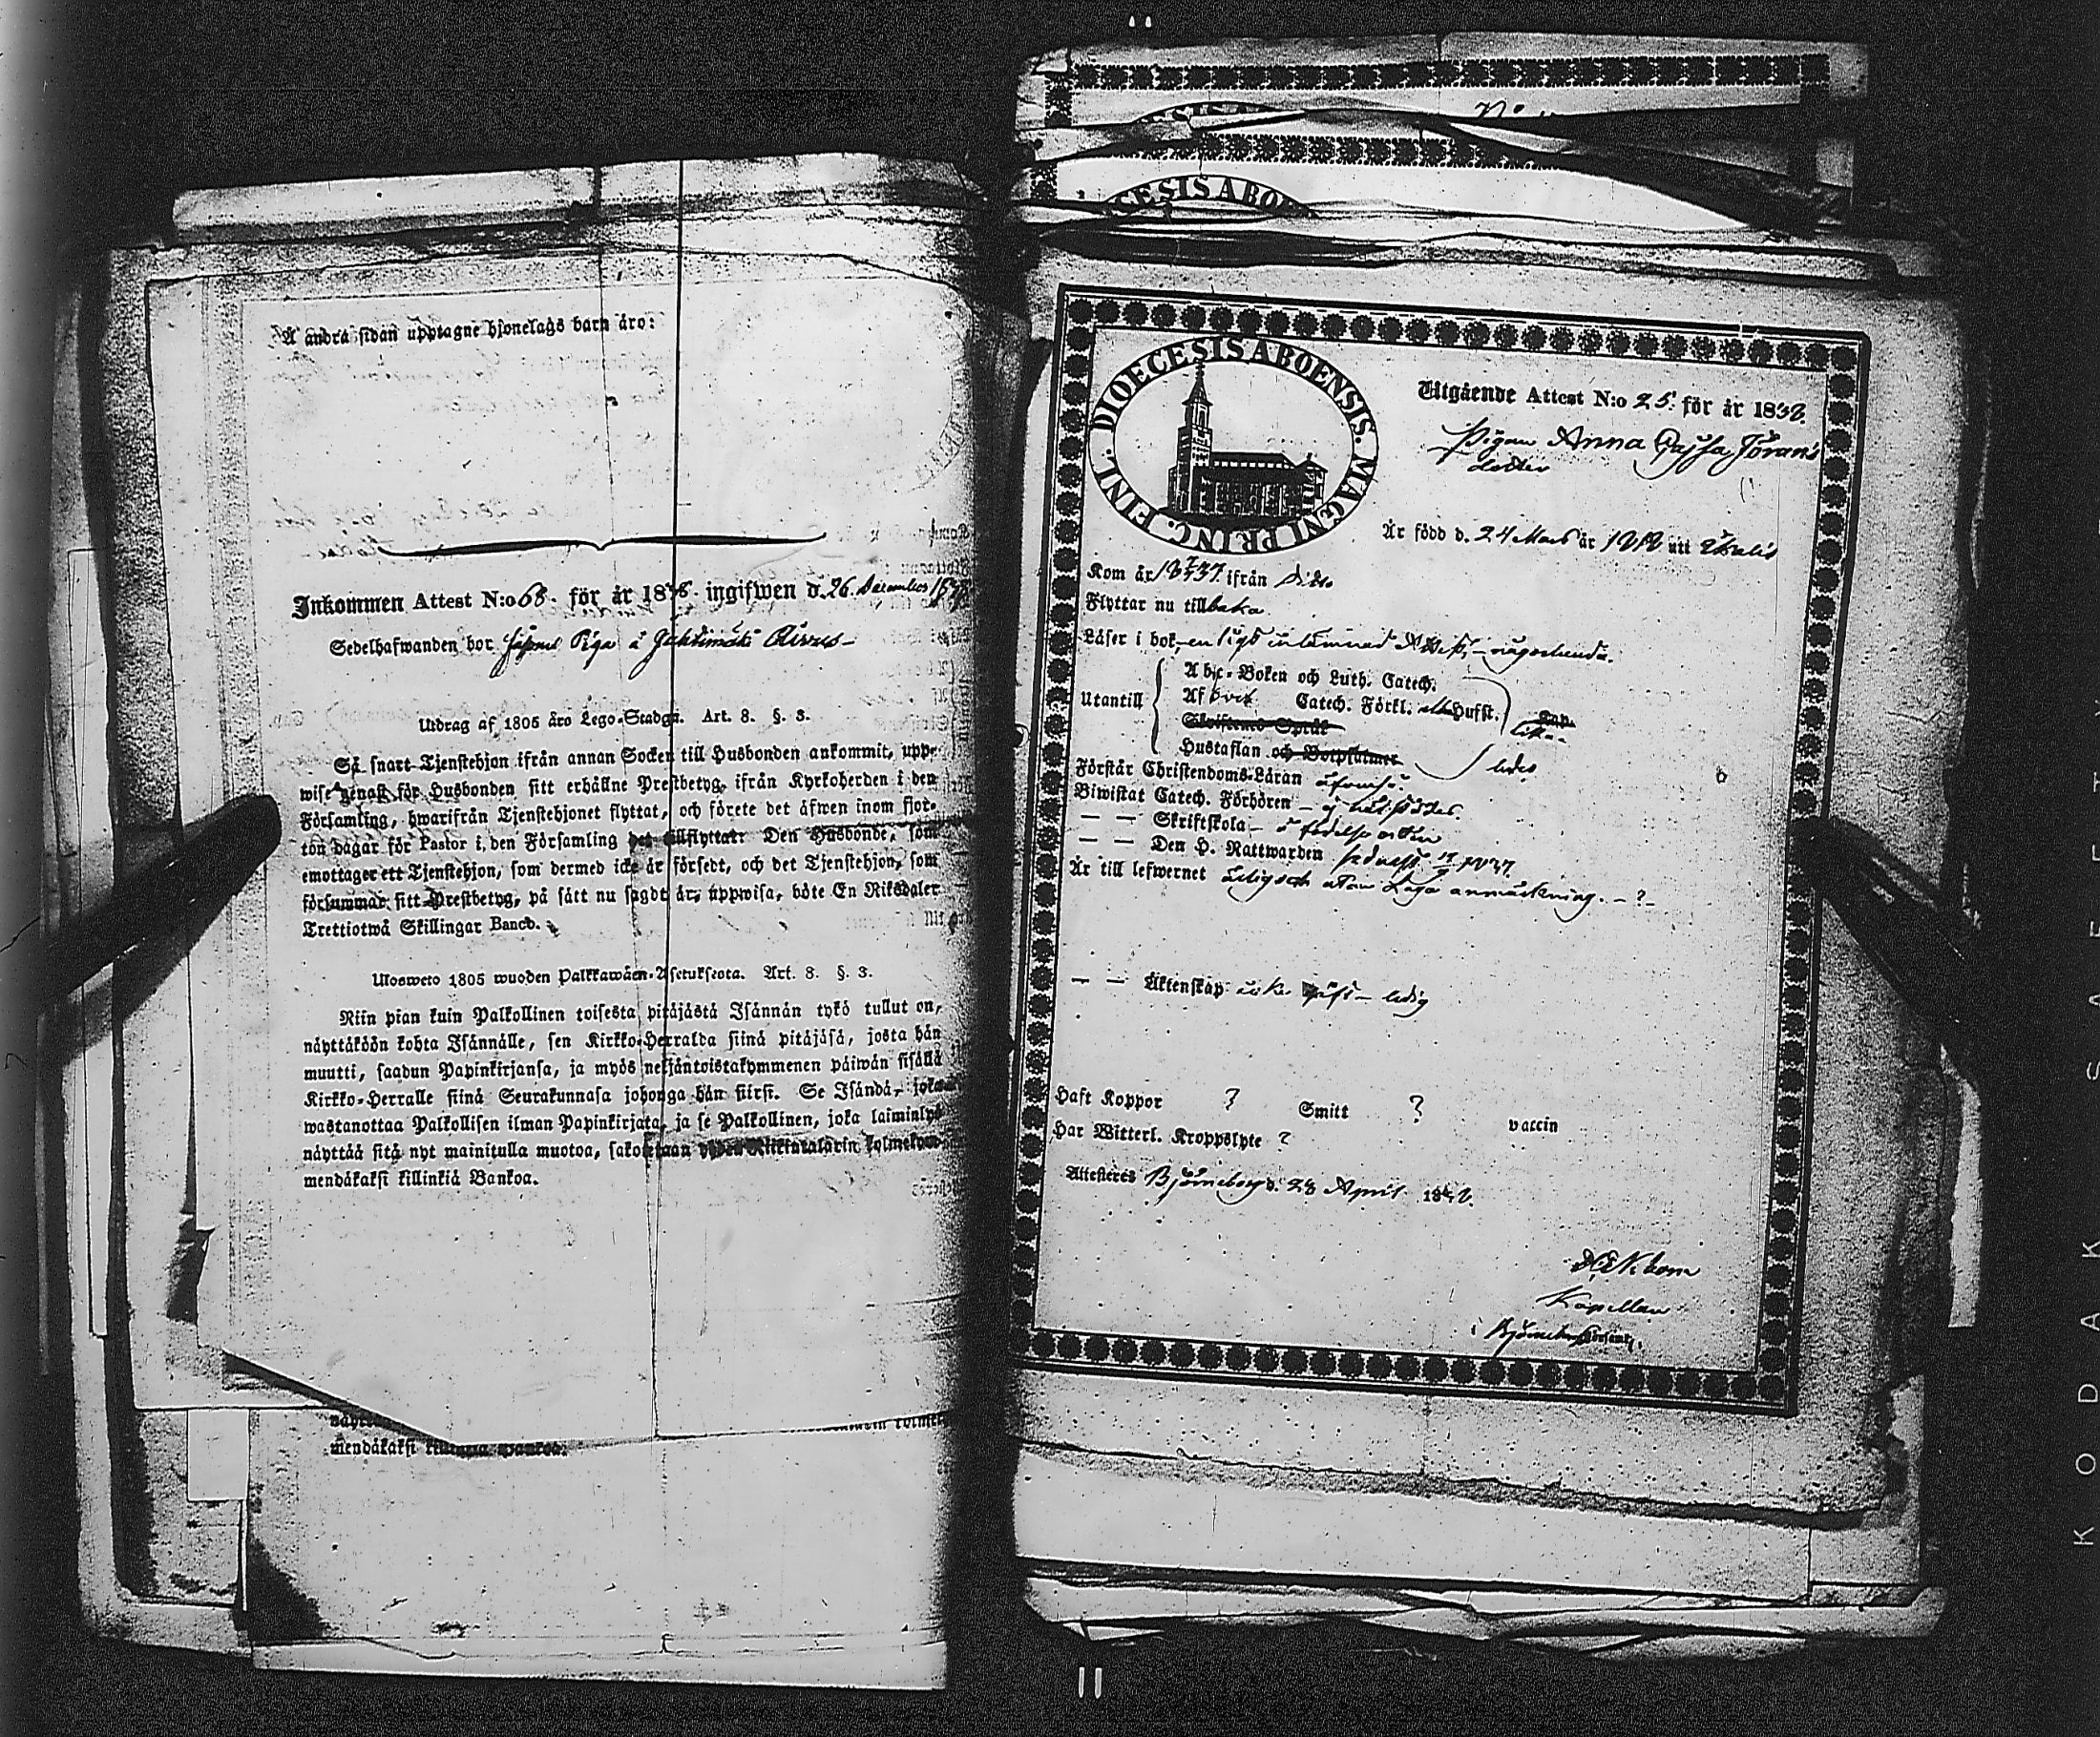 A andra sidan upptagne hjonelags barn äro:
Inkommen Attest N:o 68. för år 1838. ingifwen d. 26 December
Sedelhafwanden bor Piga å
Utdrag af 1805 åro Lego-Stadga. Art. 8. §. 3.
Så snart Tjenstehjon ifrån annan Socken till Husbonden ankommit, upp-
wise genast för Husbonden sitt erhållne Prestbetyg, ifrån Kyrkoherden i den
Församling, hwarifrån Tjenstehjonet flyttat, och förete det äfwen inom fjor-
ton dagar för Pastor i den Församling det tillflyttat: Den Husbonde, som
emottager ett Tjenstehjon, som dermed icke är försedt, och det Tjenstehjon, som
försummar sitt Prestbetyg, på sätt nu sagdt är, uppwisa, böte En Riksdaler
Trettiotwå Skillingar Banco.
Ulosweto 1805 wuoden Palkkawäen-Asetuksesta. Art. 8. §. 3.
Niin pian kuin Palkollinen toisesta pitäjästä Isännän tykö tullut on,
näyttäköön kohta Isännälle, sen Kirkko-Herralda siinä pitäjäsä, josta hän
muutti, saadun Papinkirjansa, ja myös neljäntoistakymmenen päiwän sisällä
Kirkko-Herralle siinä Seurakunnasa johonga hän siirsi. Se Isändä, joka
wastanottaa Palkollisen ilman Papinkirjata, ja se Palkollinen, joka laiminlyö
näyttää sitä nyt mainitulla muotoa, sakotetaan yhden Riikintalarin kolmekym-
mendäkaksi killinkiä Bankoa.
mendäkaksi killinkiä Bankoa.
CESIS ABOE
DIOECESIS ABOENSIS. MAGNI PRINC. FINL.
Utgående Attest N:o 25. för år 1838.
Pigan Anna Cajsa Jörans
dotter
Är född d. 24 Mars år 1818 uti
Kom år 1837 ifrån dito
Flyttar nu tillbaka.
Läser i bok, enligt inlemnad Attest, någorlunda.
Utantill
Abc-Boken och Luth. Catech.
Af Catech. Förkl. Hufst. Kap.
Skriftenes Språk lika
Hustaflan och Botpsalmer
Förstår Christendoms-Läran
Biwistat Catech. Förhören
— — Skriftskola å födelse orten
— — Den H. Nattwarden
Är till lefwernet ärlig och utan Laga anmärkning. - ? -
— — Äktenskap icke gift - ledig
Haft Koppor ? Smitt ? vaccin
Har Witterl. Kroppslyte ?
Attesteres Björneborg d. 28 April 1838.
Ekbom
Kapellan
i Björneborgs Församl.
KODAK SAFETY